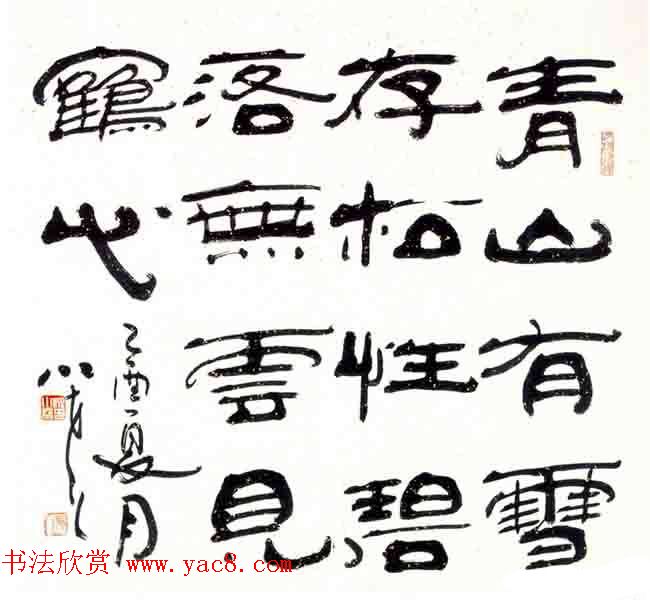 青山有雪
存松性碧
落無雲見
鶴心
乙酉夏月
书法欣赏 www.yac8.com